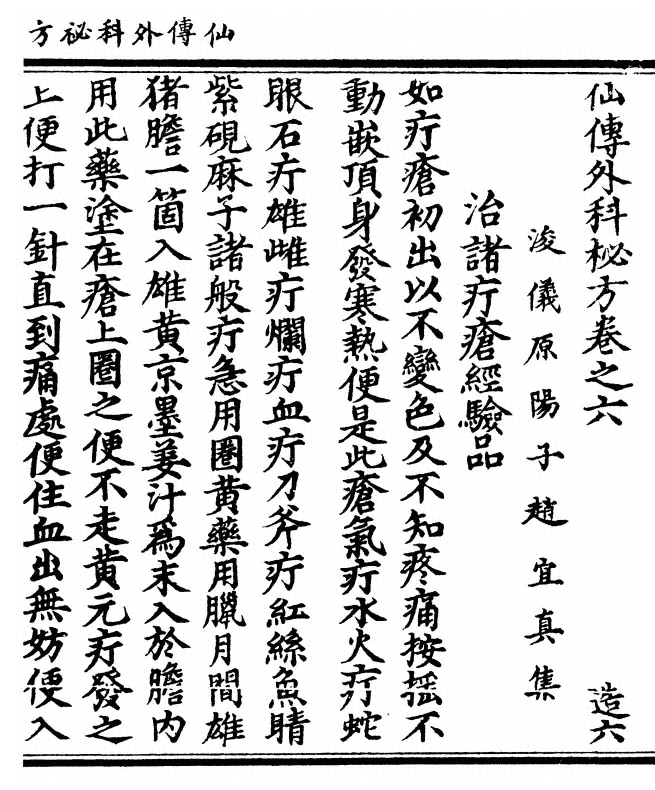 仙傳外科祕方
仙傳外科秘方卷之六 造六
浚儀原陽子趙宜真集
治諸疔瘡經驗品
如疔瘡初出以不變色及不知疼痛按搖不
動嵌頂身發寒熱便是此瘡氣疔水火疔蛇
眼石疔雄雌疔爛疔血疔刀斧疔紅絲魚睛
紫硯麻子諸般疔急用圈黃藥用臘月間雄
猪膽一箇入雄黃京墨姜汁爲末入於膽内
用此藥塗在瘡上圈之便不走黃元疔發之
上便打一針直到痛處便住血出無妨便入